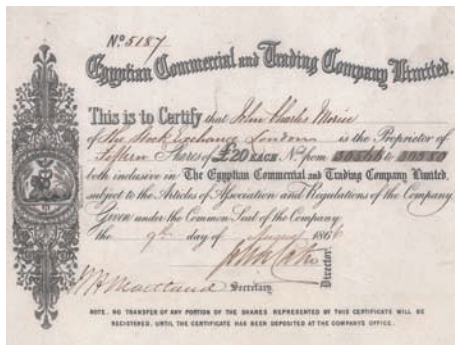 No. 5187
Egyptian Commercial and Trading Company Limited.
This is to Certify that John Charles
of The Stock Exchange London is the Proprietor of
Fifteen Shares of £20 EACH Nos. from 30566 to 30580
both inclusive in The Egyptian Commercial and Trading Company Limited,
subject to the Articles of Association and Regulations of the Company
Given under the Common Seal of the Company
the 9th day of August 1866
Director.
Secretary.
NOTE. NO TRANSFER OF ANY PORTION OF THE SHARES REPRESENTED BY THIS CERTIFICATE WILL BE
REGISTERED, UNTIL THE CERTIFICATE HAS BEEN DEPOSITED AT THE COMPANY'S OFFICE.